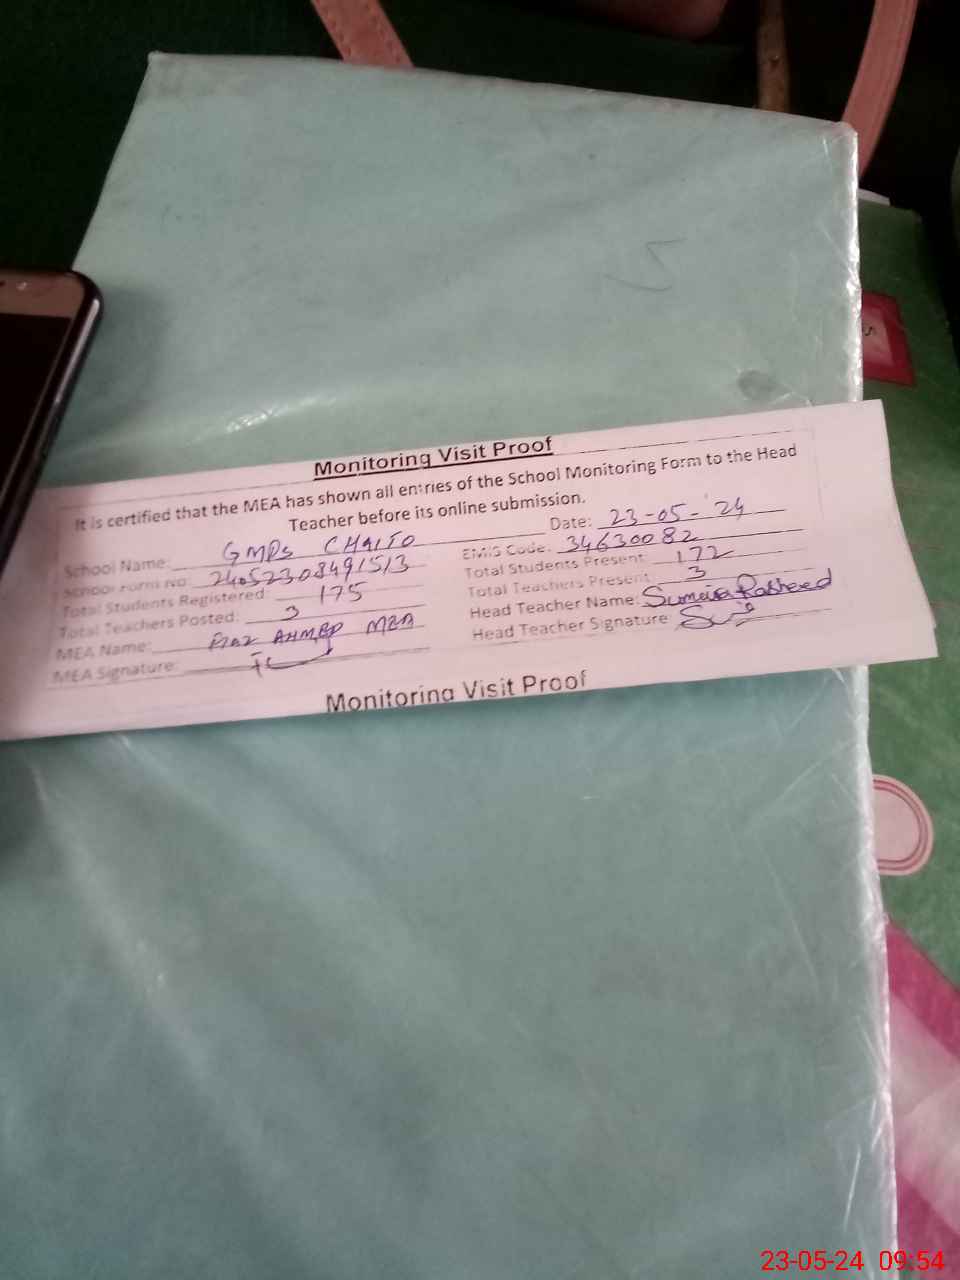 Monitoring Visit Proof
It is certified that the MEA has shown all entries of the School Monitoring Form to the Head
Teacher before its online submission.
Date: 23-05-24
School Name: GMPS
EMIS Code: 34630082
School Form No: 24052308491513
Total Students Present: 172
Total Students Registered: 175
Total Teachers Present: 3
Total Teachers Posted: 3
Head Teacher Name: Sumaira Rasheed
MEA Name: AHMED MEA
Head Teacher Signature
MEA Signature:
Monitoring Visit Proof
23-05-24 09:54